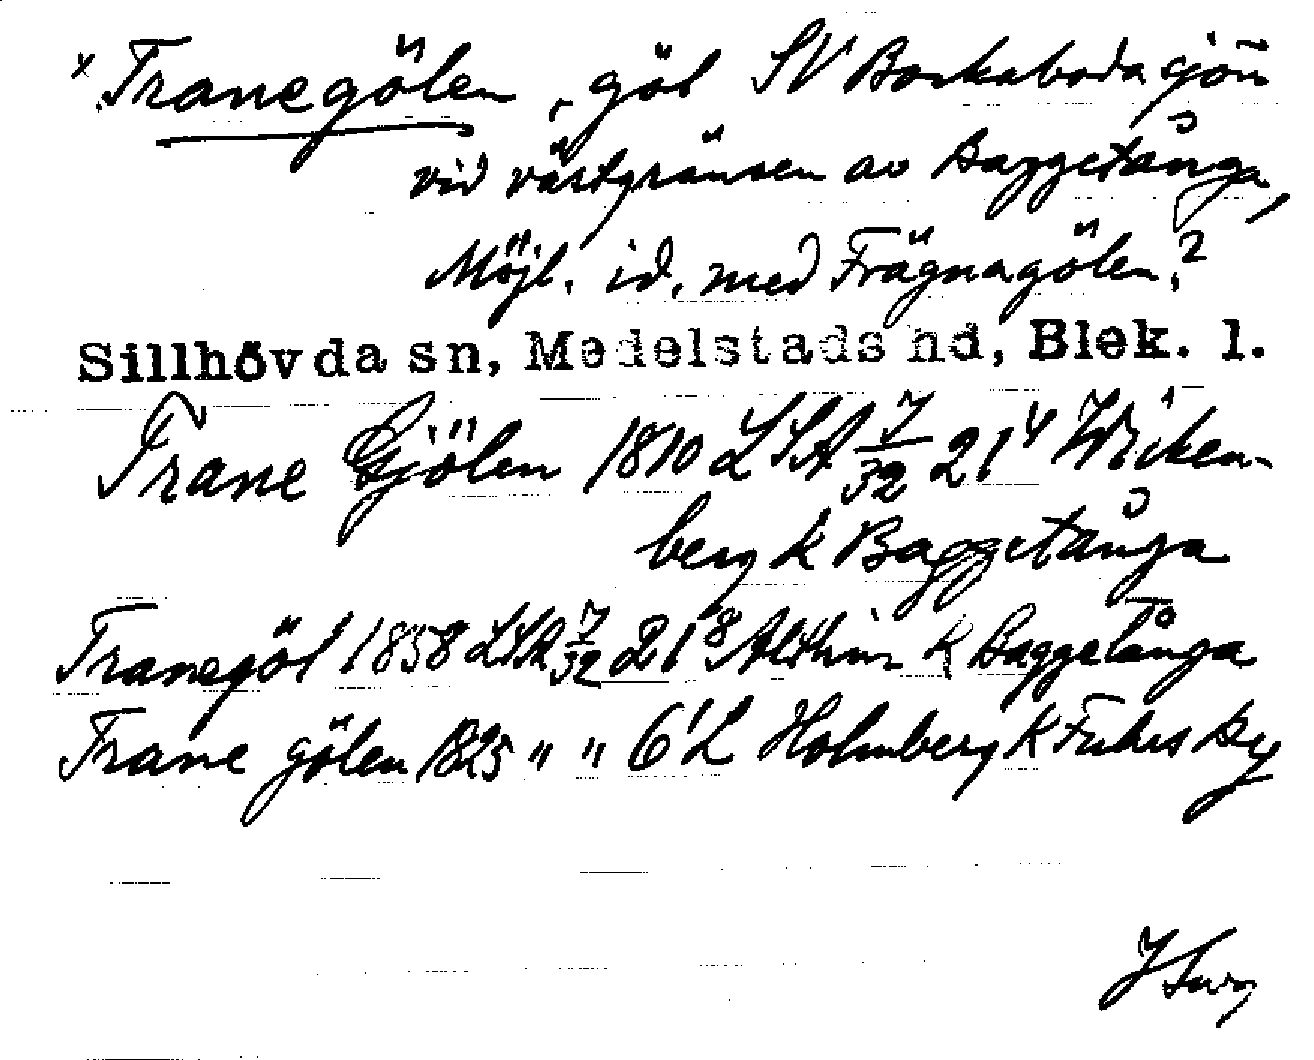 x Tranegölen, göl SV Borkabodasjön
vid västgränsen av Baggetånga,
Möjl. id. med Frägnagölen?
Sillhövda sn, Medelstads hd, Blek. l.
Trane Gjölen 1810 LSA 7/32 21⁴ Wicken-
berg k Baggetånga
Tranegöl 1858 LSA 7/32 21⁸ k Baggetånga
Trane gölen 1825 " " 6¹ L Holmberg k Fuhrs By